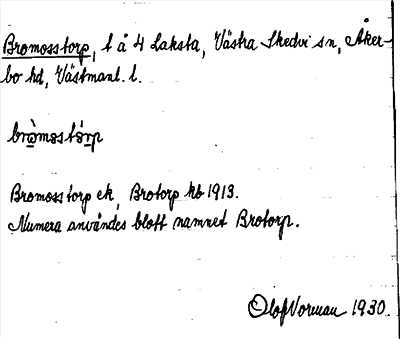 Bromosstorp, t å 4 Laksta, Västra Skedvi sn, Åker-
bo hd, Västmanl. l.
bròmostórp
Bromosstorp ek, Brotorp kb 1913.
Numera användes blott namnet Brotorp.
Olof Norman 1930.